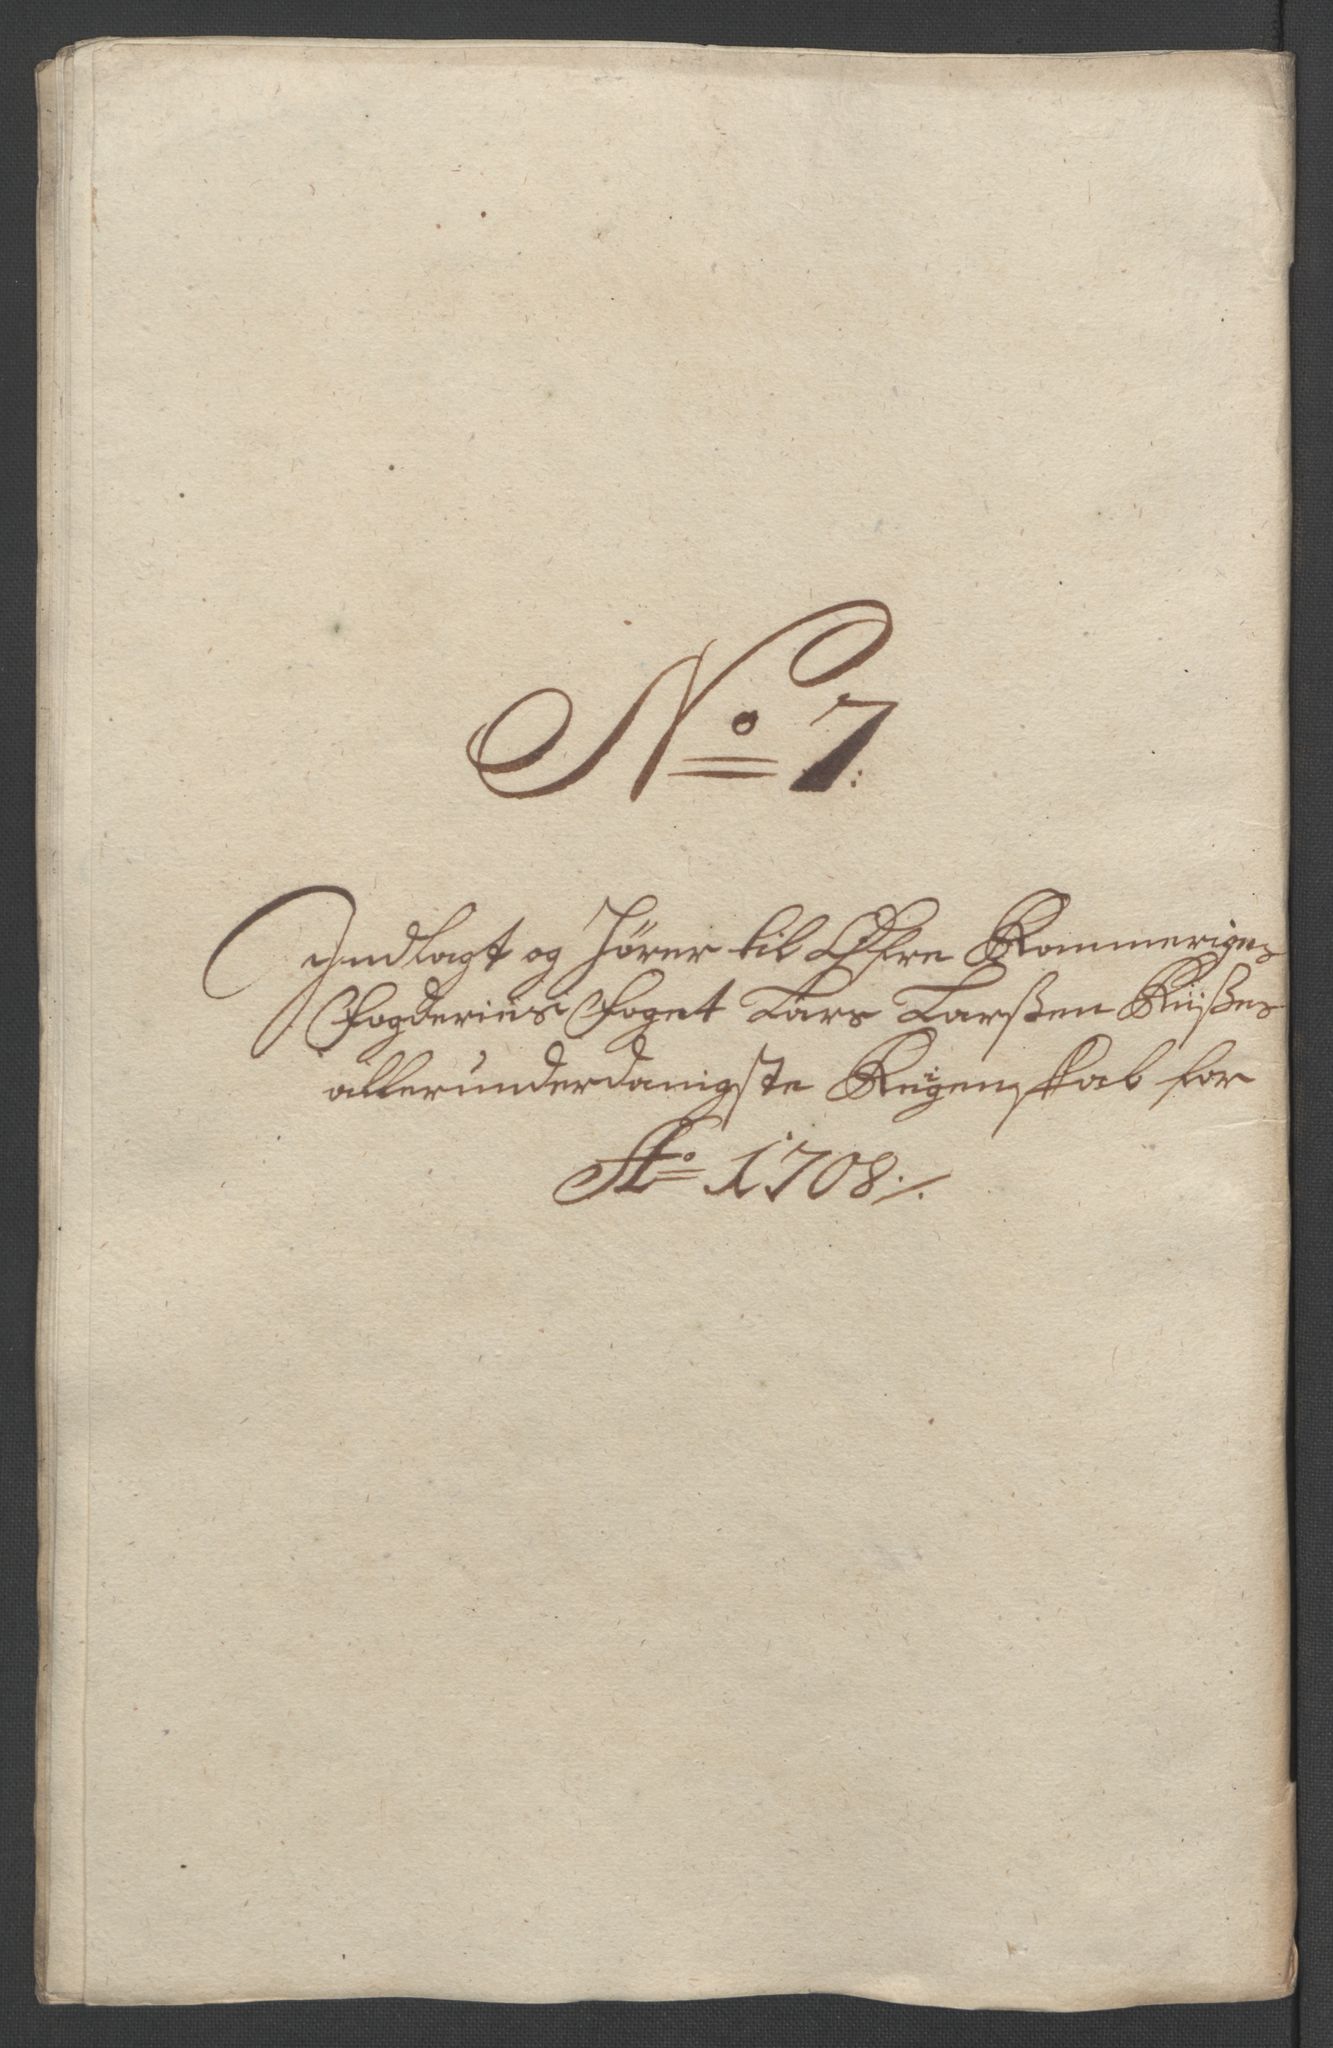 No 7:
Indlagt og hörer til Öfre Rommeriges
Fogderies Foget Lars Larßen Riißes
allerunderdanigste Reigenskab for
Ao 1708 ./.